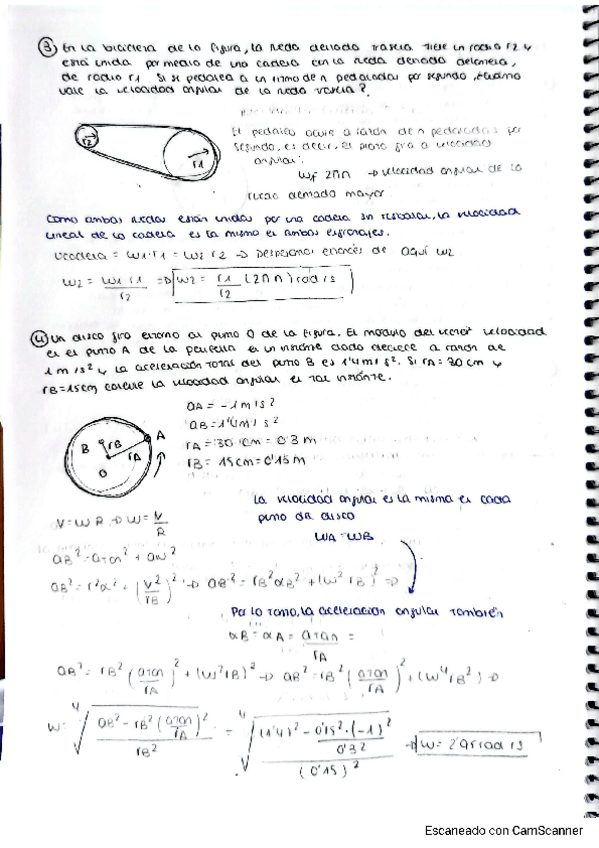 ③ En la bicicleta de la figura, la rueda dentada trasera tiene un radio r2 y
está unida por medio de una cadena con la rueda dentada delantera,
de radio r1. Si se pedalea a un ritmo de n pedaladas por segundo, ¿Cuánto
vale la velocidad angular de la rueda trasera?
El pedaleo ocurre a razón de n pedaladas por
segundo, es decir, el plato gira a velocidad
angular:
r2
r1
2πn → velocidad angular de la
rueda dentada mayor
Como ambas ruedas están unidas por una cadena sin resbalar, la velocidad
lineal de la cadena es la misma en ambos engranajes.
Vcadena = W1·r1 = W2·r2 → Despejamos entonces de aquí W2
W2 = W1 r1 / r2 → W2 = r1 / r2 (2πn) rad/s
④ Un disco gira entorno al punto O de la figura. El módulo del vector velocidad
en el punto A de la periferia en un instante dado decrece a razón de
1 m/s² y la aceleración total del punto B es 1'4 m/s². Si rA = 30 cm y
rB = 15 cm calcule la velocidad angular en tal instante.
aA = -1 m/s²
aB = 1'4 m/s²
rA = 30 cm = 0'3 m
rB = 15 cm = 0'15 m
B rB A
rA
O
La velocidad angular es la misma en cada
punto del disco
V = W R → W = V/R
WA = WB
aB² = atan² + an²
aB² = r²α² + (V²/rB)² → aB² = rB² αB² + (W² rB)² →
Por lo tanto, la aceleración angular también
αB = αA = atan / rA =
aB² = rB² (atan/rA)² + (W² rB)² → aB² = rB² (atan/rA)² + (W⁴ rB²) →
W = ⁴√((aB² - rB² (atan/rA)²) / rB²) = ⁴√(((1'4)² - 0'15²·(-1)²/0'3²) / (0'15)²) → W = 2'95 rad/s
Escaneado con CamScanner